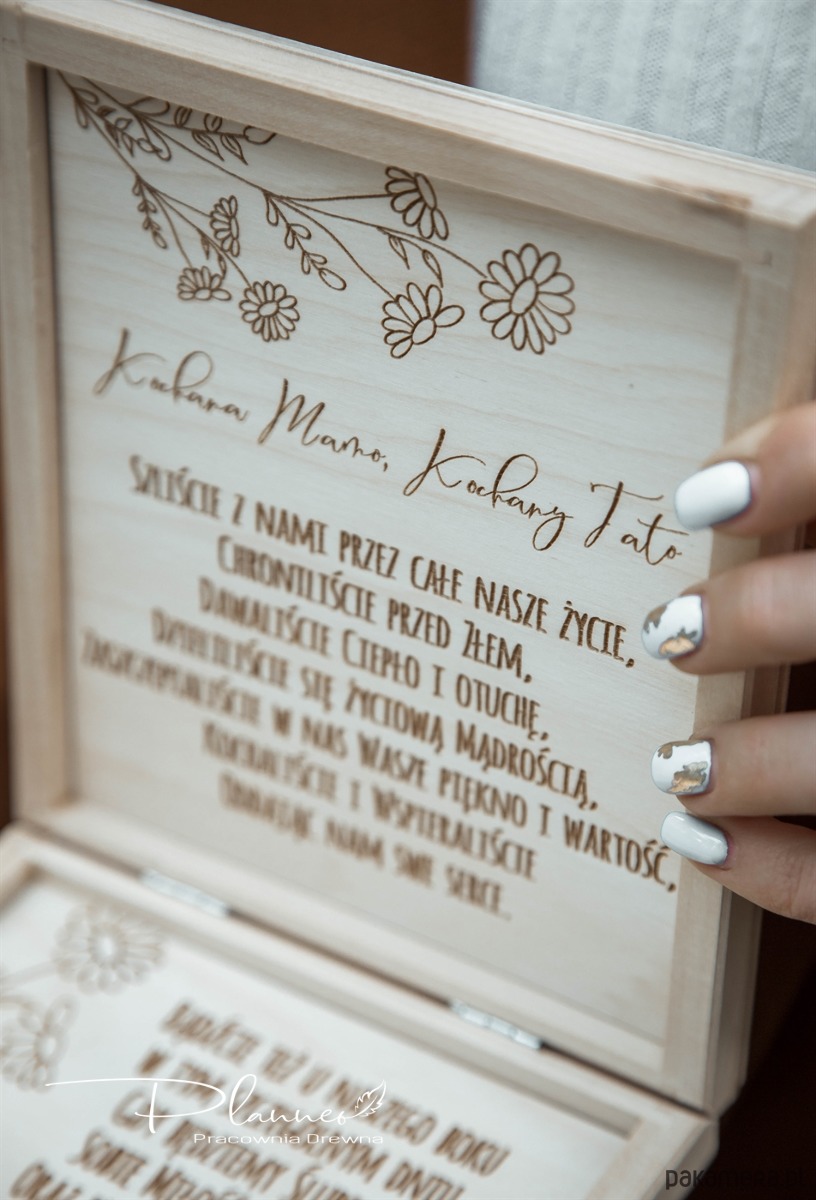 Kochana Mamo, Kochany Tato
Szliście z nami przez całe nasze życie,
Chroniliście przed Złem,
Dawaliście Ciepło i otuchę,
Dzieliliście się życiową Mądrością,
Zaszczepialiście w nas Wasze piękno i wartość,
Kochaliście i Wspieraliście
Oddając nam swe serce.
Bądźcie też u naszego boku
W tym dniu
Gdy będziemy
Sobie
Oraz
Plannes
Pracownia Drewna
pakamera.pl